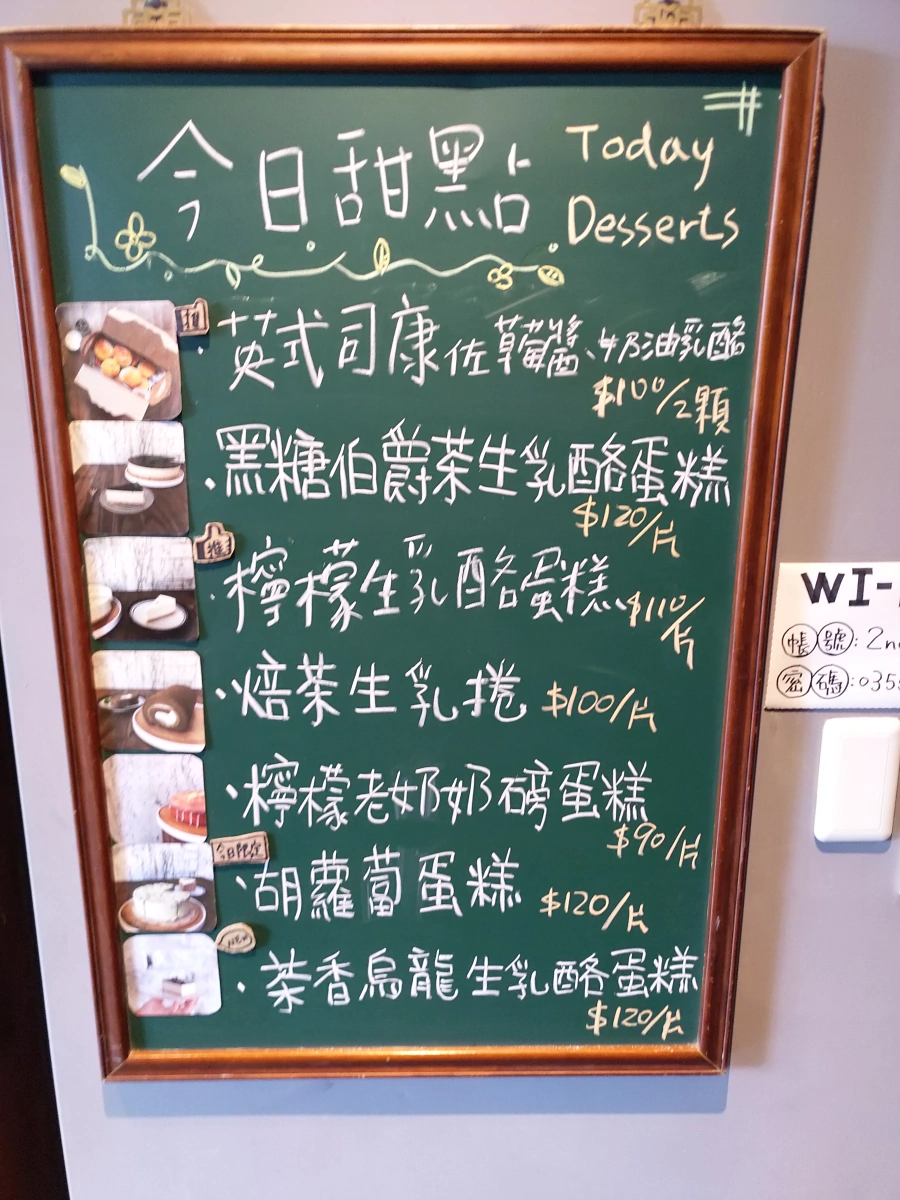 今日甜點
Today
Desserts
推
·英式司康佐草莓醬、牛奶油乳酪
$100/2顆
·黑糖伯爵茶生乳酪蛋糕
$120/片
推
·檸檬生乳酪蛋糕 $110/片
·焙茶生乳捲 $100/片
·檸檬老奶奶磅蛋糕
$90/片
今日限定
·胡蘿蔔蛋糕 $120/片
NEW
·茶香烏龍生乳酪蛋糕
$120/片
WI-
帳號:2n
密碼:035